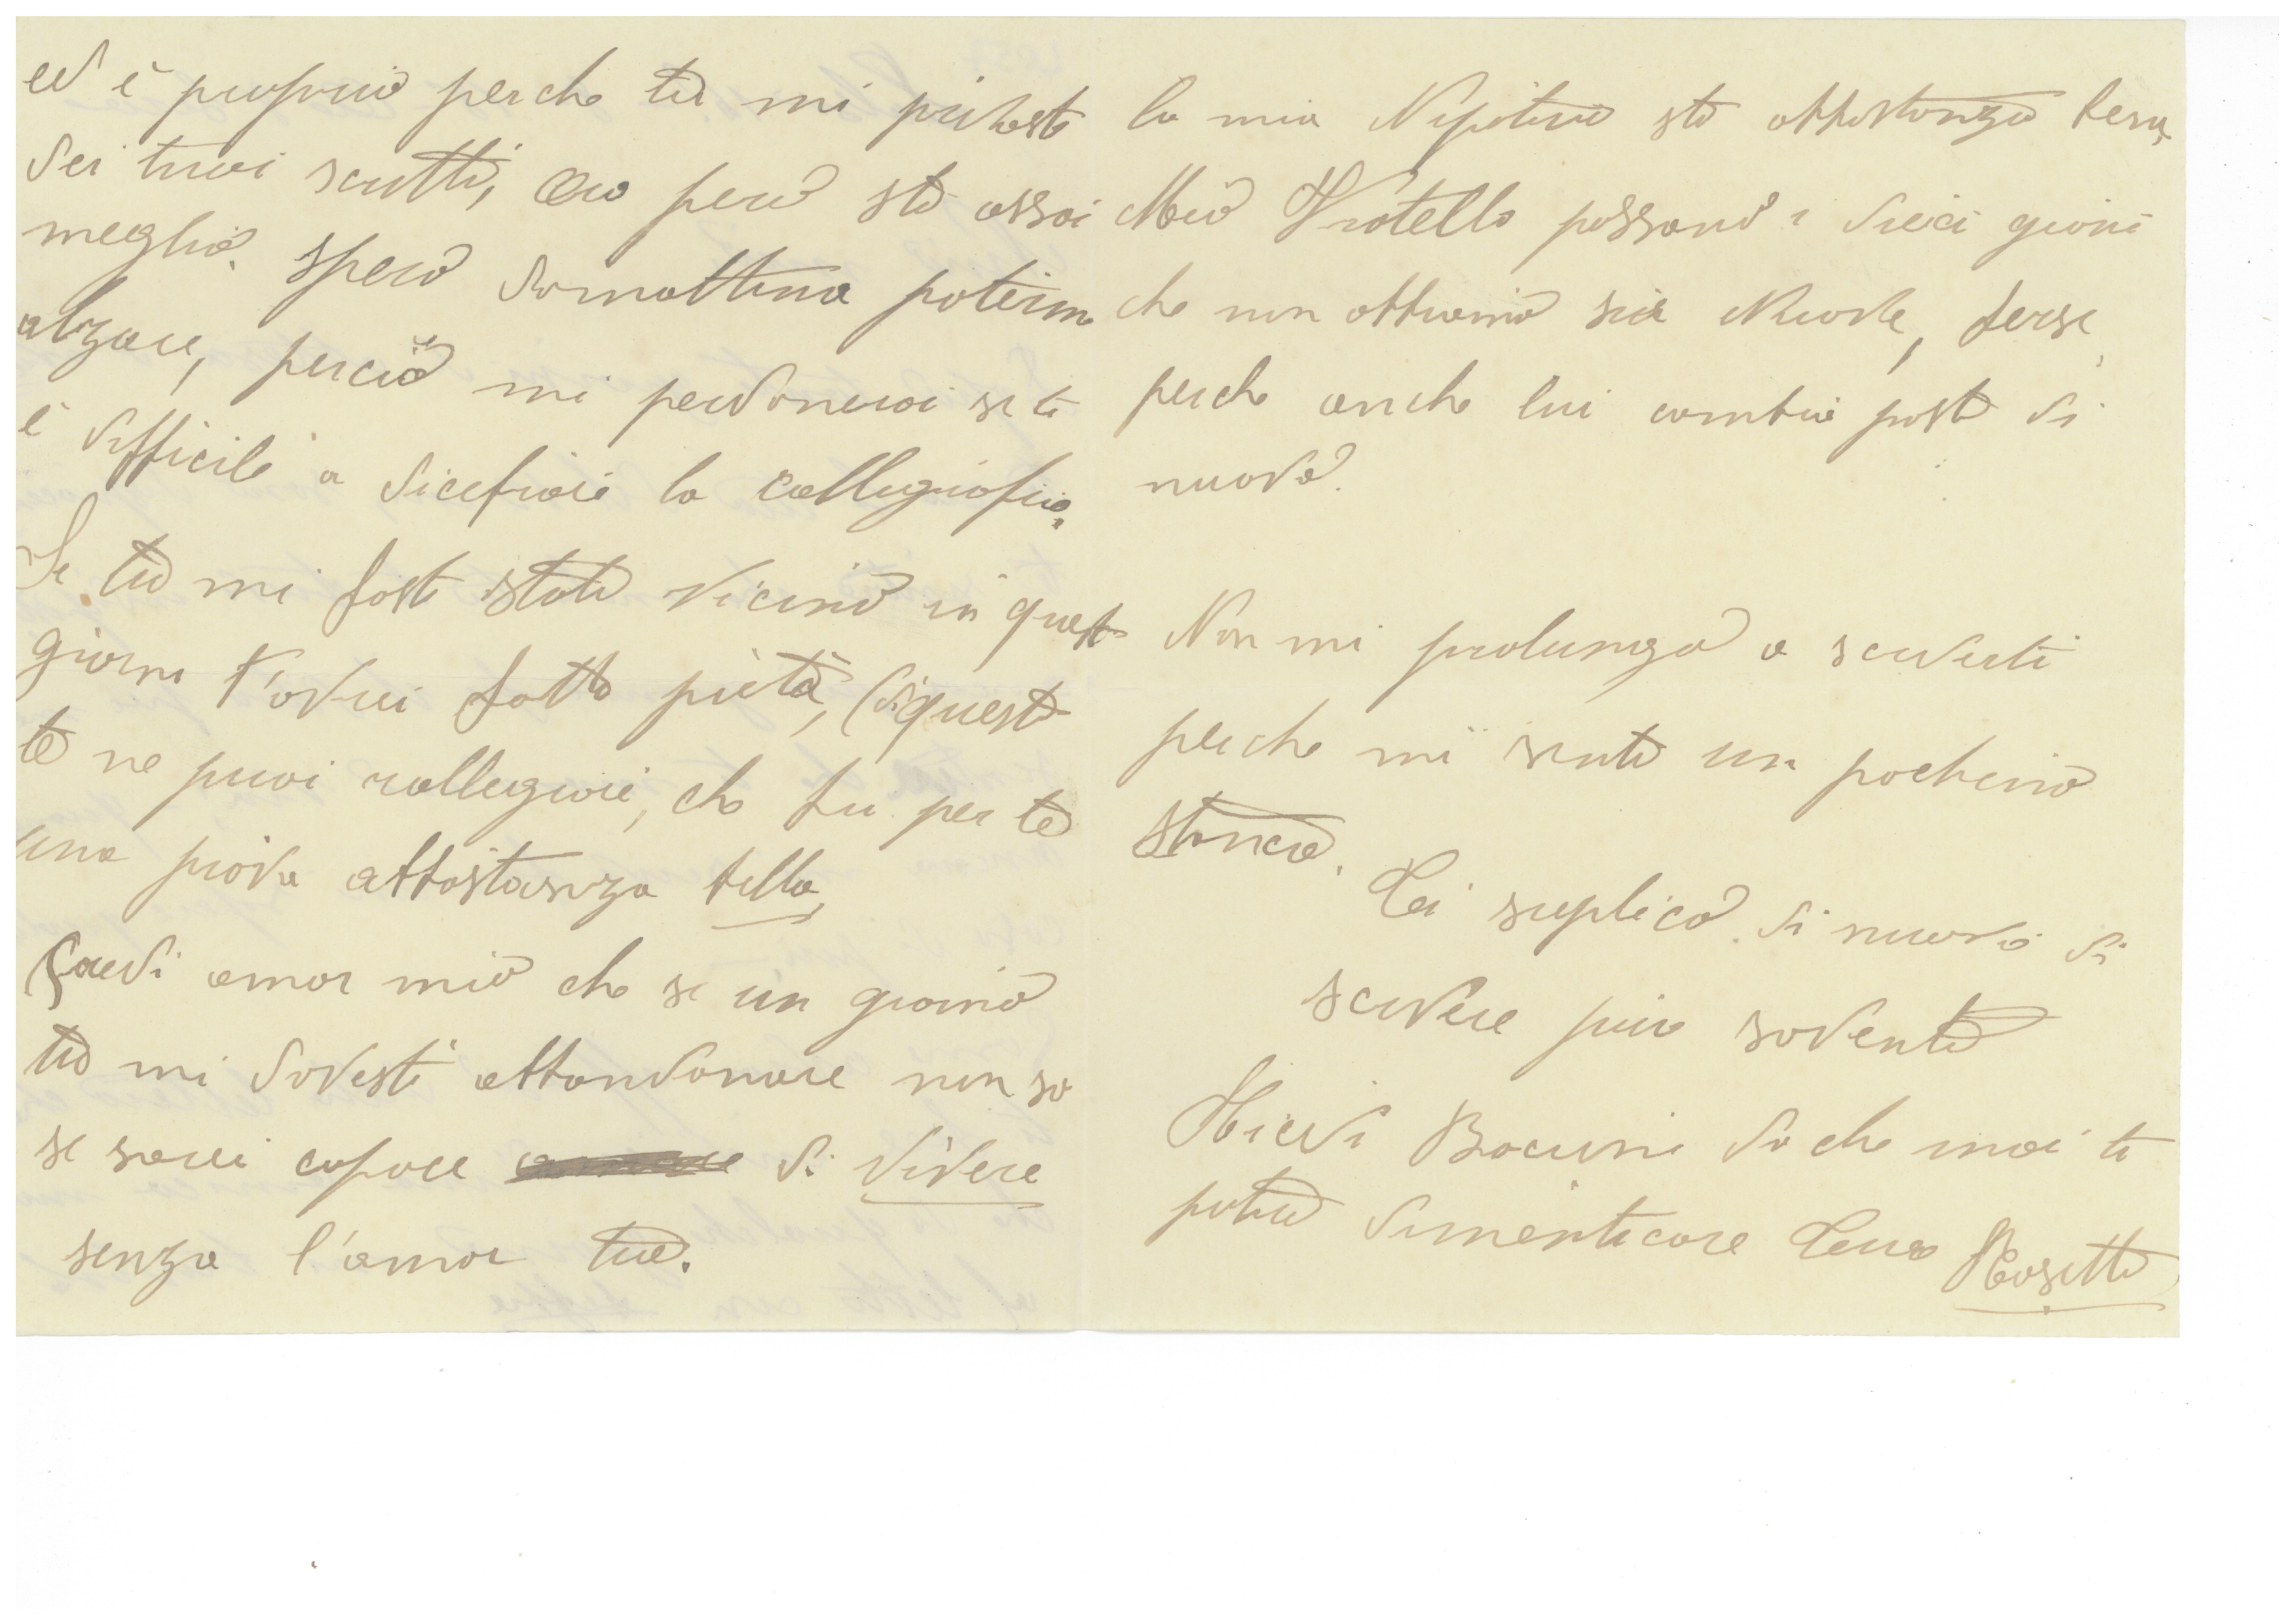 ed è proprio perche tu mi privasti
dei tuoi scritti, Ora però sto assai
meglio. Spero domattina poterm
alzare, perciò mi perdonerai se ti
è difficile a dicefrare la callegrafia.
Se tu mi fosti stato vicino in questi
giorni t'avrei fatto pietà, di questo
te ne puoi rallegrare, che fu per te
una prova abbastanza bella,
Credi amor mio che se un giorno
tu mi dovesti abbandonare non so
se sarei capace di vivere
senza l'amor tuo.
la mia Nipotina sta abbastanza bene,
Mio Fratello passano i dieci giorni
che non abbiamo sue Nuove, forse,
perche anche lui cambia posto di
nuovo.
Non mi prolungo a scriverti
perche mi sento un pochino
stanca.
Ti suplico di nuovo di
scrivere più sovente
Ricevi Bacioni da che mai ti
potrà dimenticare Tua Rosetta